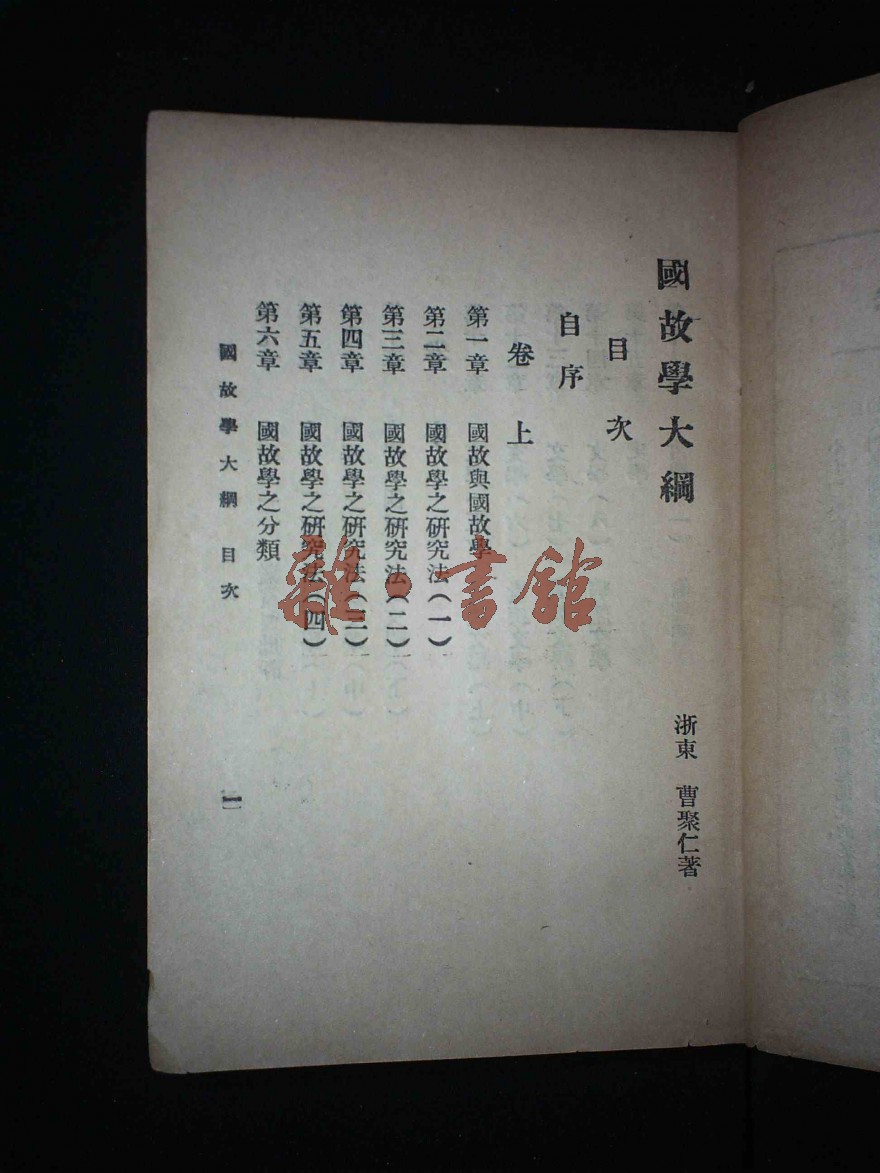 國故學大綱
浙東 曹聚仁著
目次
自序
卷上
第一章 國故與國故學
第二章 國故學之研究法(一)
第三章 國故學之研究法(二)
第四章 國故學之研究法(三)
第五章 國故學之研究法(四)
第六章 國故學之分類
國故學大綱 目次
雜·書館